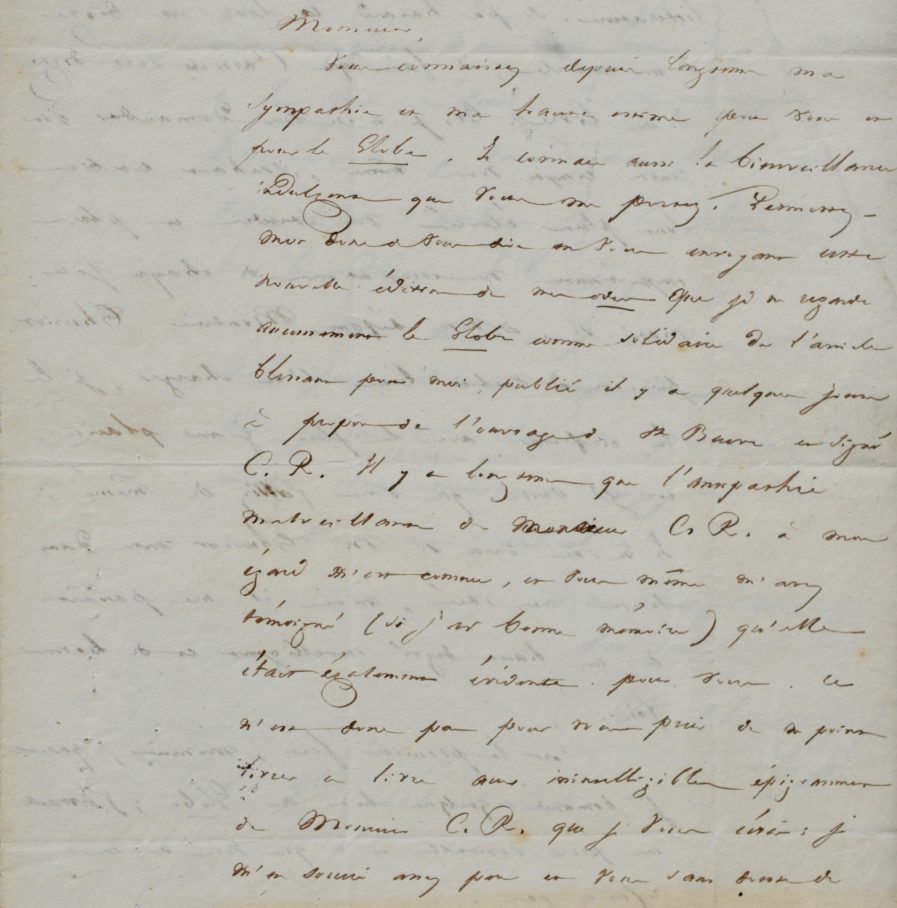 Monsieur,
Vous connaissez depuis longtems ma
sympathie et ma haute estime pour vous et
pour le Globe. Je connais aussi la bienveillance
indulgente que vous me portez. Permettez-
moi donc de vous dire en vous envoyant cette
nouvelle édition de mes odes que je ne regarde
aucunement le Globe comme solidaire de l'article
blessant pour moi, publié il y a quelques jours
à propos de l'ouvrage de Ste Beuve et signé
C. R. Il y a longtems que l'antipathie
malveillante de Monsieur C. R. à mon
égard m'est connue, et vous même m'avez
témoigné (si j'ai bonne mémoire) qu'elle
était également évidente pour vous. Ce
n'est donc pas pour vous prier de ne point
livrer ce livre aux inintelligibles épigrammes
de Monsieur C. R. que je vous écris ; je
m'en soucie assez peu et vous sans doute